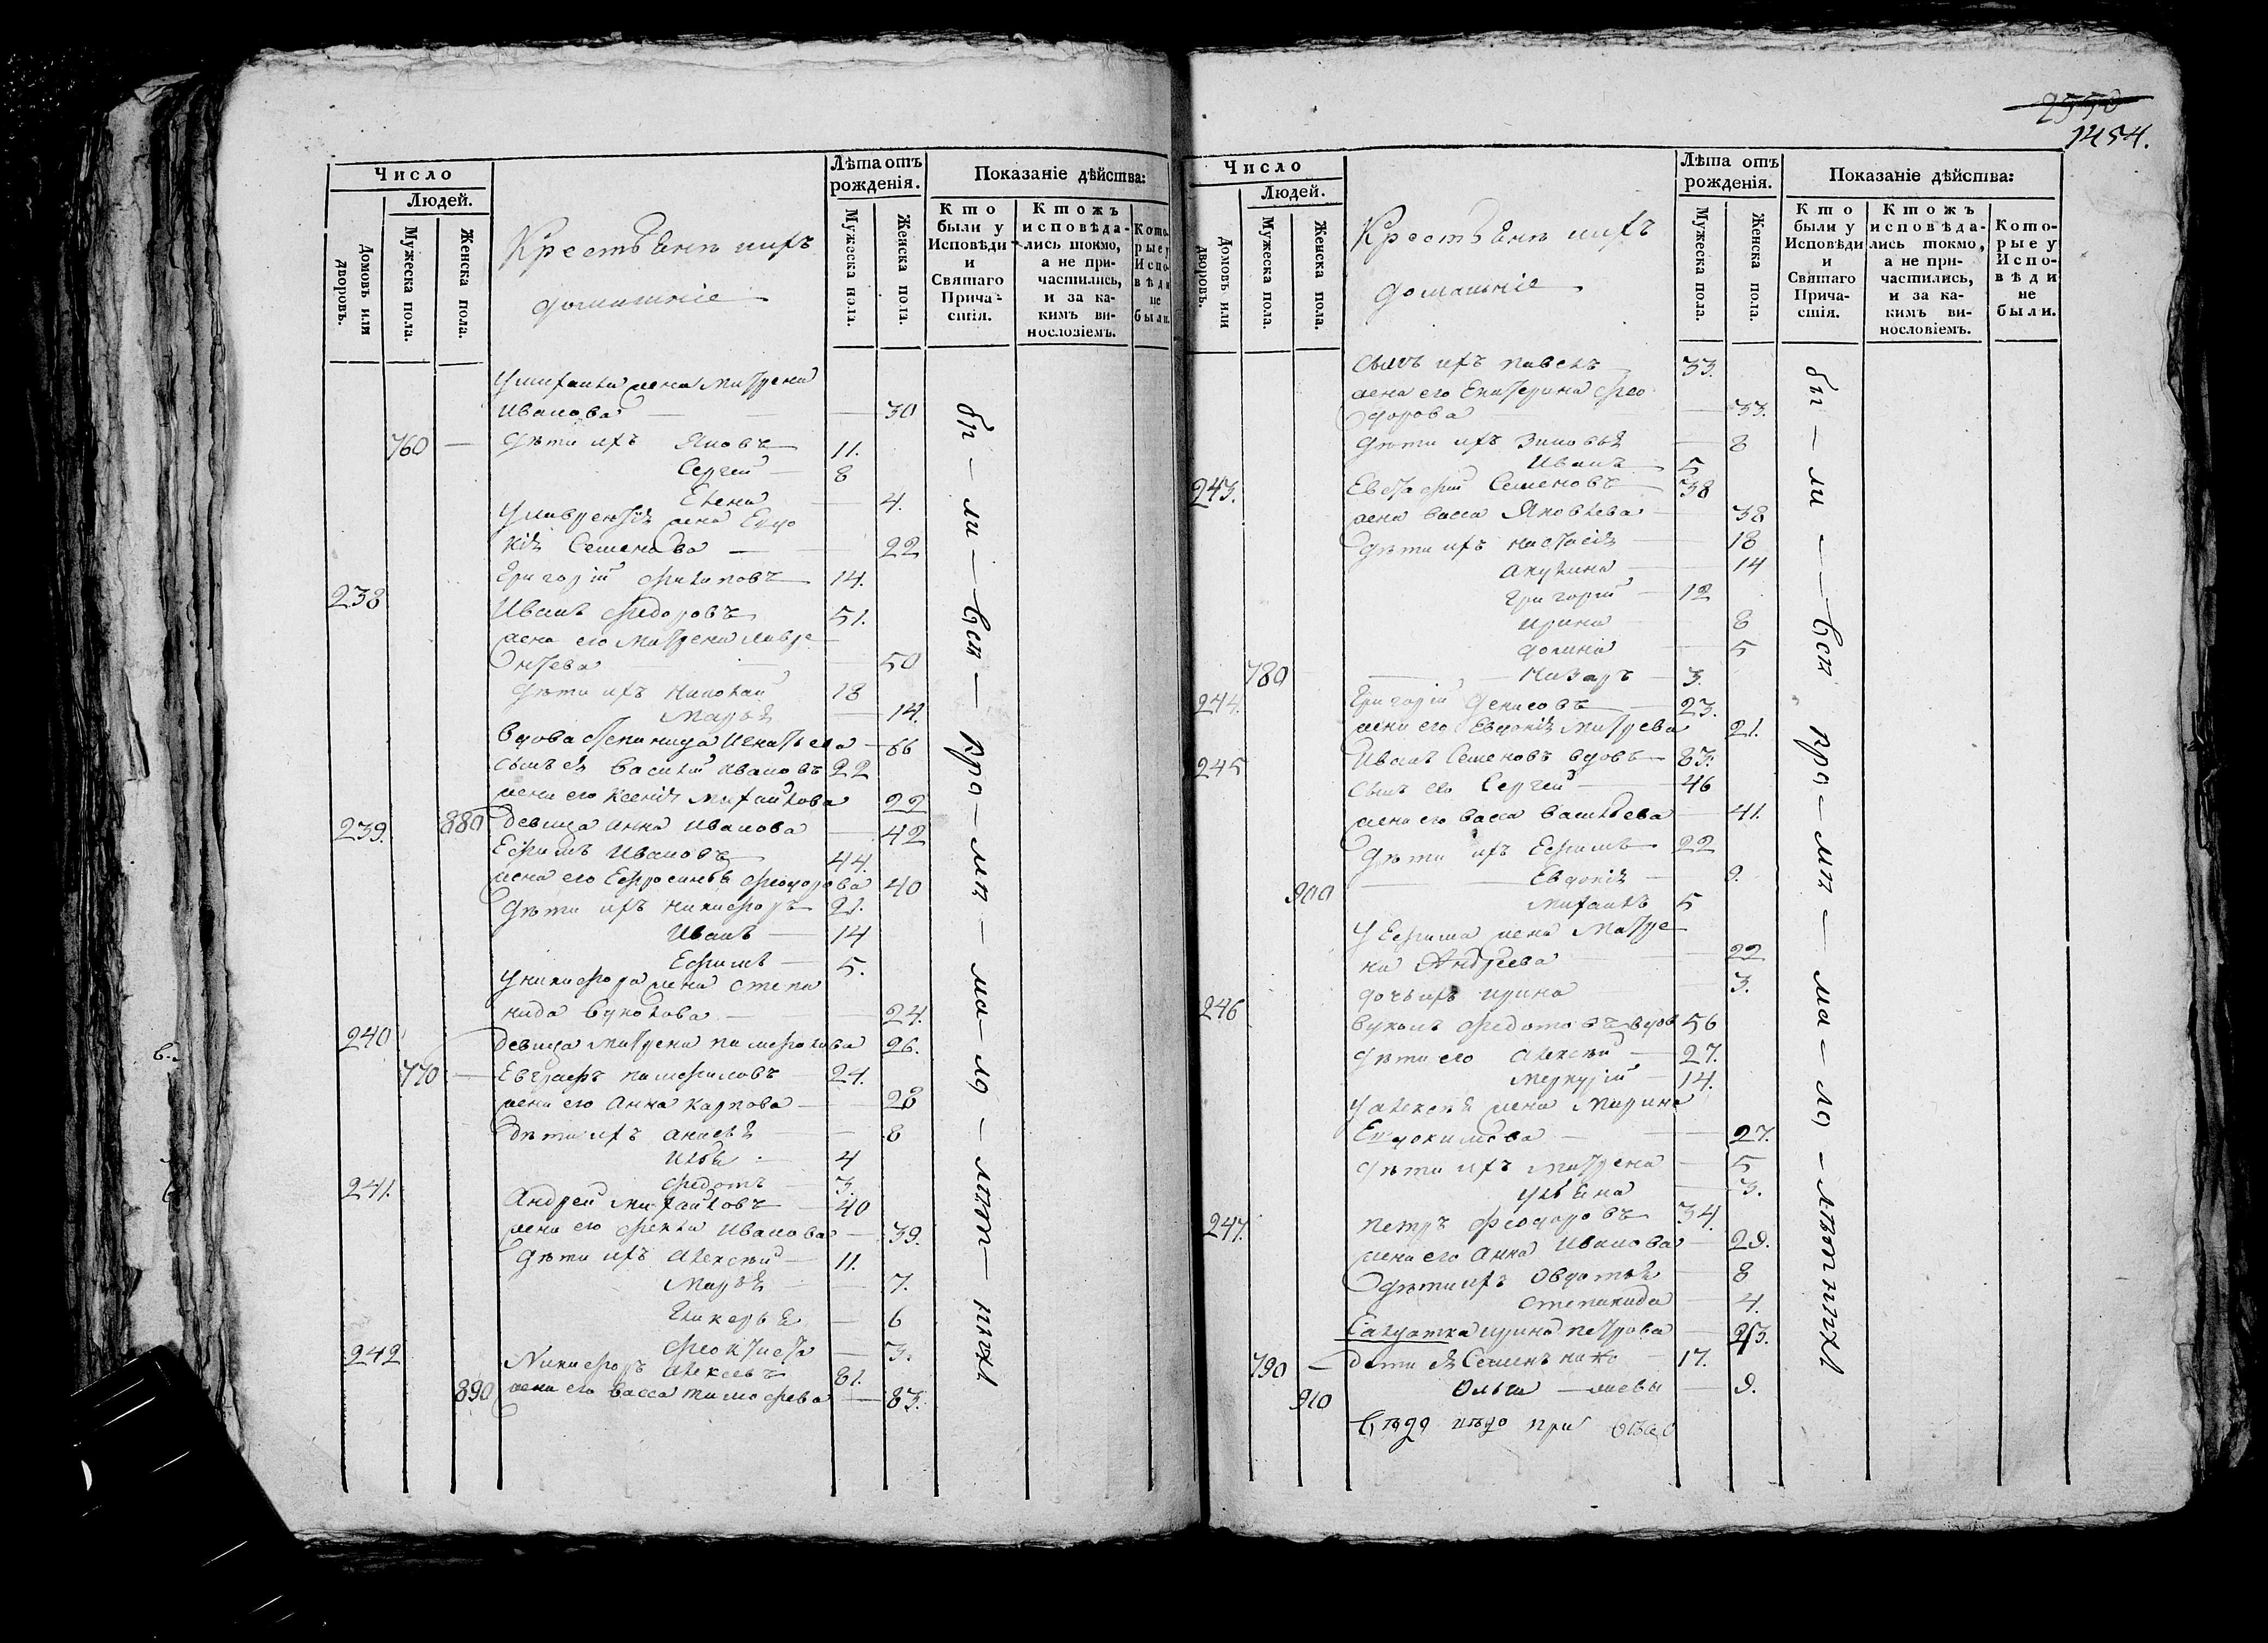 2550
1454.
Число
Людей.
Домовъ или дворовъ.
Мужеска пола.
Женска пола.
Крестьяне и ихъ
домашніе
Лѣта отъ
рожденія.
Мужеска пола.
Женска пола.
Показаніе дѣйства:
Кто
были у
Исповѣди
и
Святаго
Прича-
стія.
Ктожъ
исповѣда-
лись токмо,
а не при-
частились,
и за ка-
кимъ ви-
нословіемъ.
Кото-
рые у
Испо-
вѣди
не
были.
У михаила жена матрена
Иванова — 30
760 — дѣти ихъ Яковъ 11.
Сергей 8
Елена 4.
У лаврентія жена Евдо
кія Семенова — 22
Григорій филиповъ 14.
238 Иванъ федоровъ 51.
жена его матрена лавре
нтьева 50
дѣти ихъ николай 18
Марья 14.
Вдова степанида игнатьева 66
сынъ ея Василий ивановъ 22
жена его ксенія михайлова 22
239. 880 девица анна иванова 42
Ефимъ Ивановъ 44.
жена его Ефросинья феодорова 40
дѣти ихъ никифоръ 21.
Иванъ 14
Ефимъ 5.
У никифора жена степа
нида вуколова 24.
240 девица матрена памфилова 26.
770 — Евграфъ памфиловъ 24.
жена его анна карпова 28
дѣти ихъ анисья 8
Илья 4
федотъ 3.
241. Андрей михайловъ 40
жена его фекла иванова 39.
дѣти ихъ алексѣй 11.
Марья 7.
Гликерья 6
феоктиста 3.
242 Никифоръ алексевъ 81.
890 жена его васса тимофеева 83.
бы — ли — всѣ — про — мѣ — ма — ло — лѣт — ныхъ
Число
Людей.
Домовъ или дворовъ.
Мужеска пола.
Женска пола.
Крестьяне и ихъ
домашніе
Лѣта отъ
рожденія.
Мужеска пола.
Женска пола.
Показаніе дѣйства:
Кто
были у
Исповѣди
и
Святаго
Прича-
стія.
Ктожъ
исповѣда-
лись токмо,
а не при-
частились,
и за ка-
кимъ ви-
нословіемъ.
Кото-
рые у
Испо-
вѣди
не
были.
сынъ ихъ павелъ 33.
жена его Екатерина фео
дорова 33.
дѣти ихъ зиновья 8
Иванъ 5
243. Евстафій Семеновъ 38
жена васса Яковлева 38
дѣти ихъ настасія 18
акулина 14
григорій 12
ирина 8
домна 5
780 назаръ 3.
244. Григорій денисовъ 23.
жена его Евдокія матвеева 21.
245 Иванъ Семеновъ вдовъ 83.
сынъ его Сергей 46
жена его васса васильева 41.
дѣти ихъ Ефимъ 22
Евдокія 9.
900 михаилъ 5
У Ефима жена Матре
на Андреева 22
дочь ихъ ирина 3.
246 Вуколъ федотовъ вдов 56
дѣти его алексѣй 27.
меркурій 14.
У алексѣя жена Марина
Евдокимова 27.
дѣти ихъ матрена 5
ульяна 3.
247. петръ феодоровъ 34.
жена его анна иванова 29.
дѣти ихъ овдотья 8
степанида 4.
Салдатка ирина петрова 53.
790 — дети ея Семенъ 17.
910 Ольга 9.
бы — ли — всѣ про — мѣ — ма — ло — лѣтныхъ